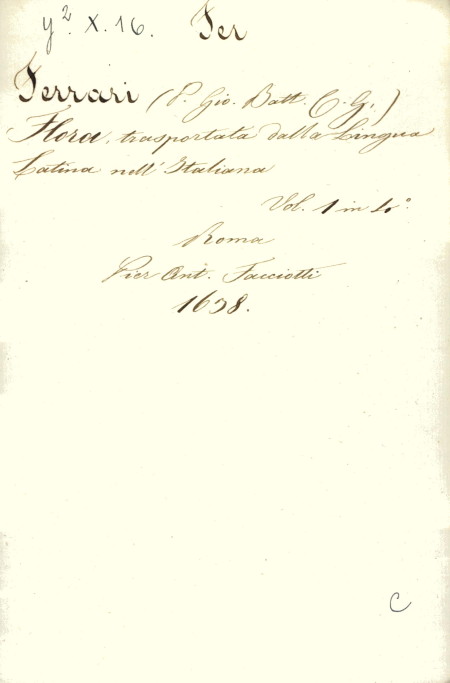 y². X. 16. Fer
Ferrari (P. Gio. Batt. C. G.)
Flora, trasportata dalla Lingua
Latina nell'Italiana
Vol. 1 in 4°.
Roma
Pier Ant. Facciotti
1638.
C